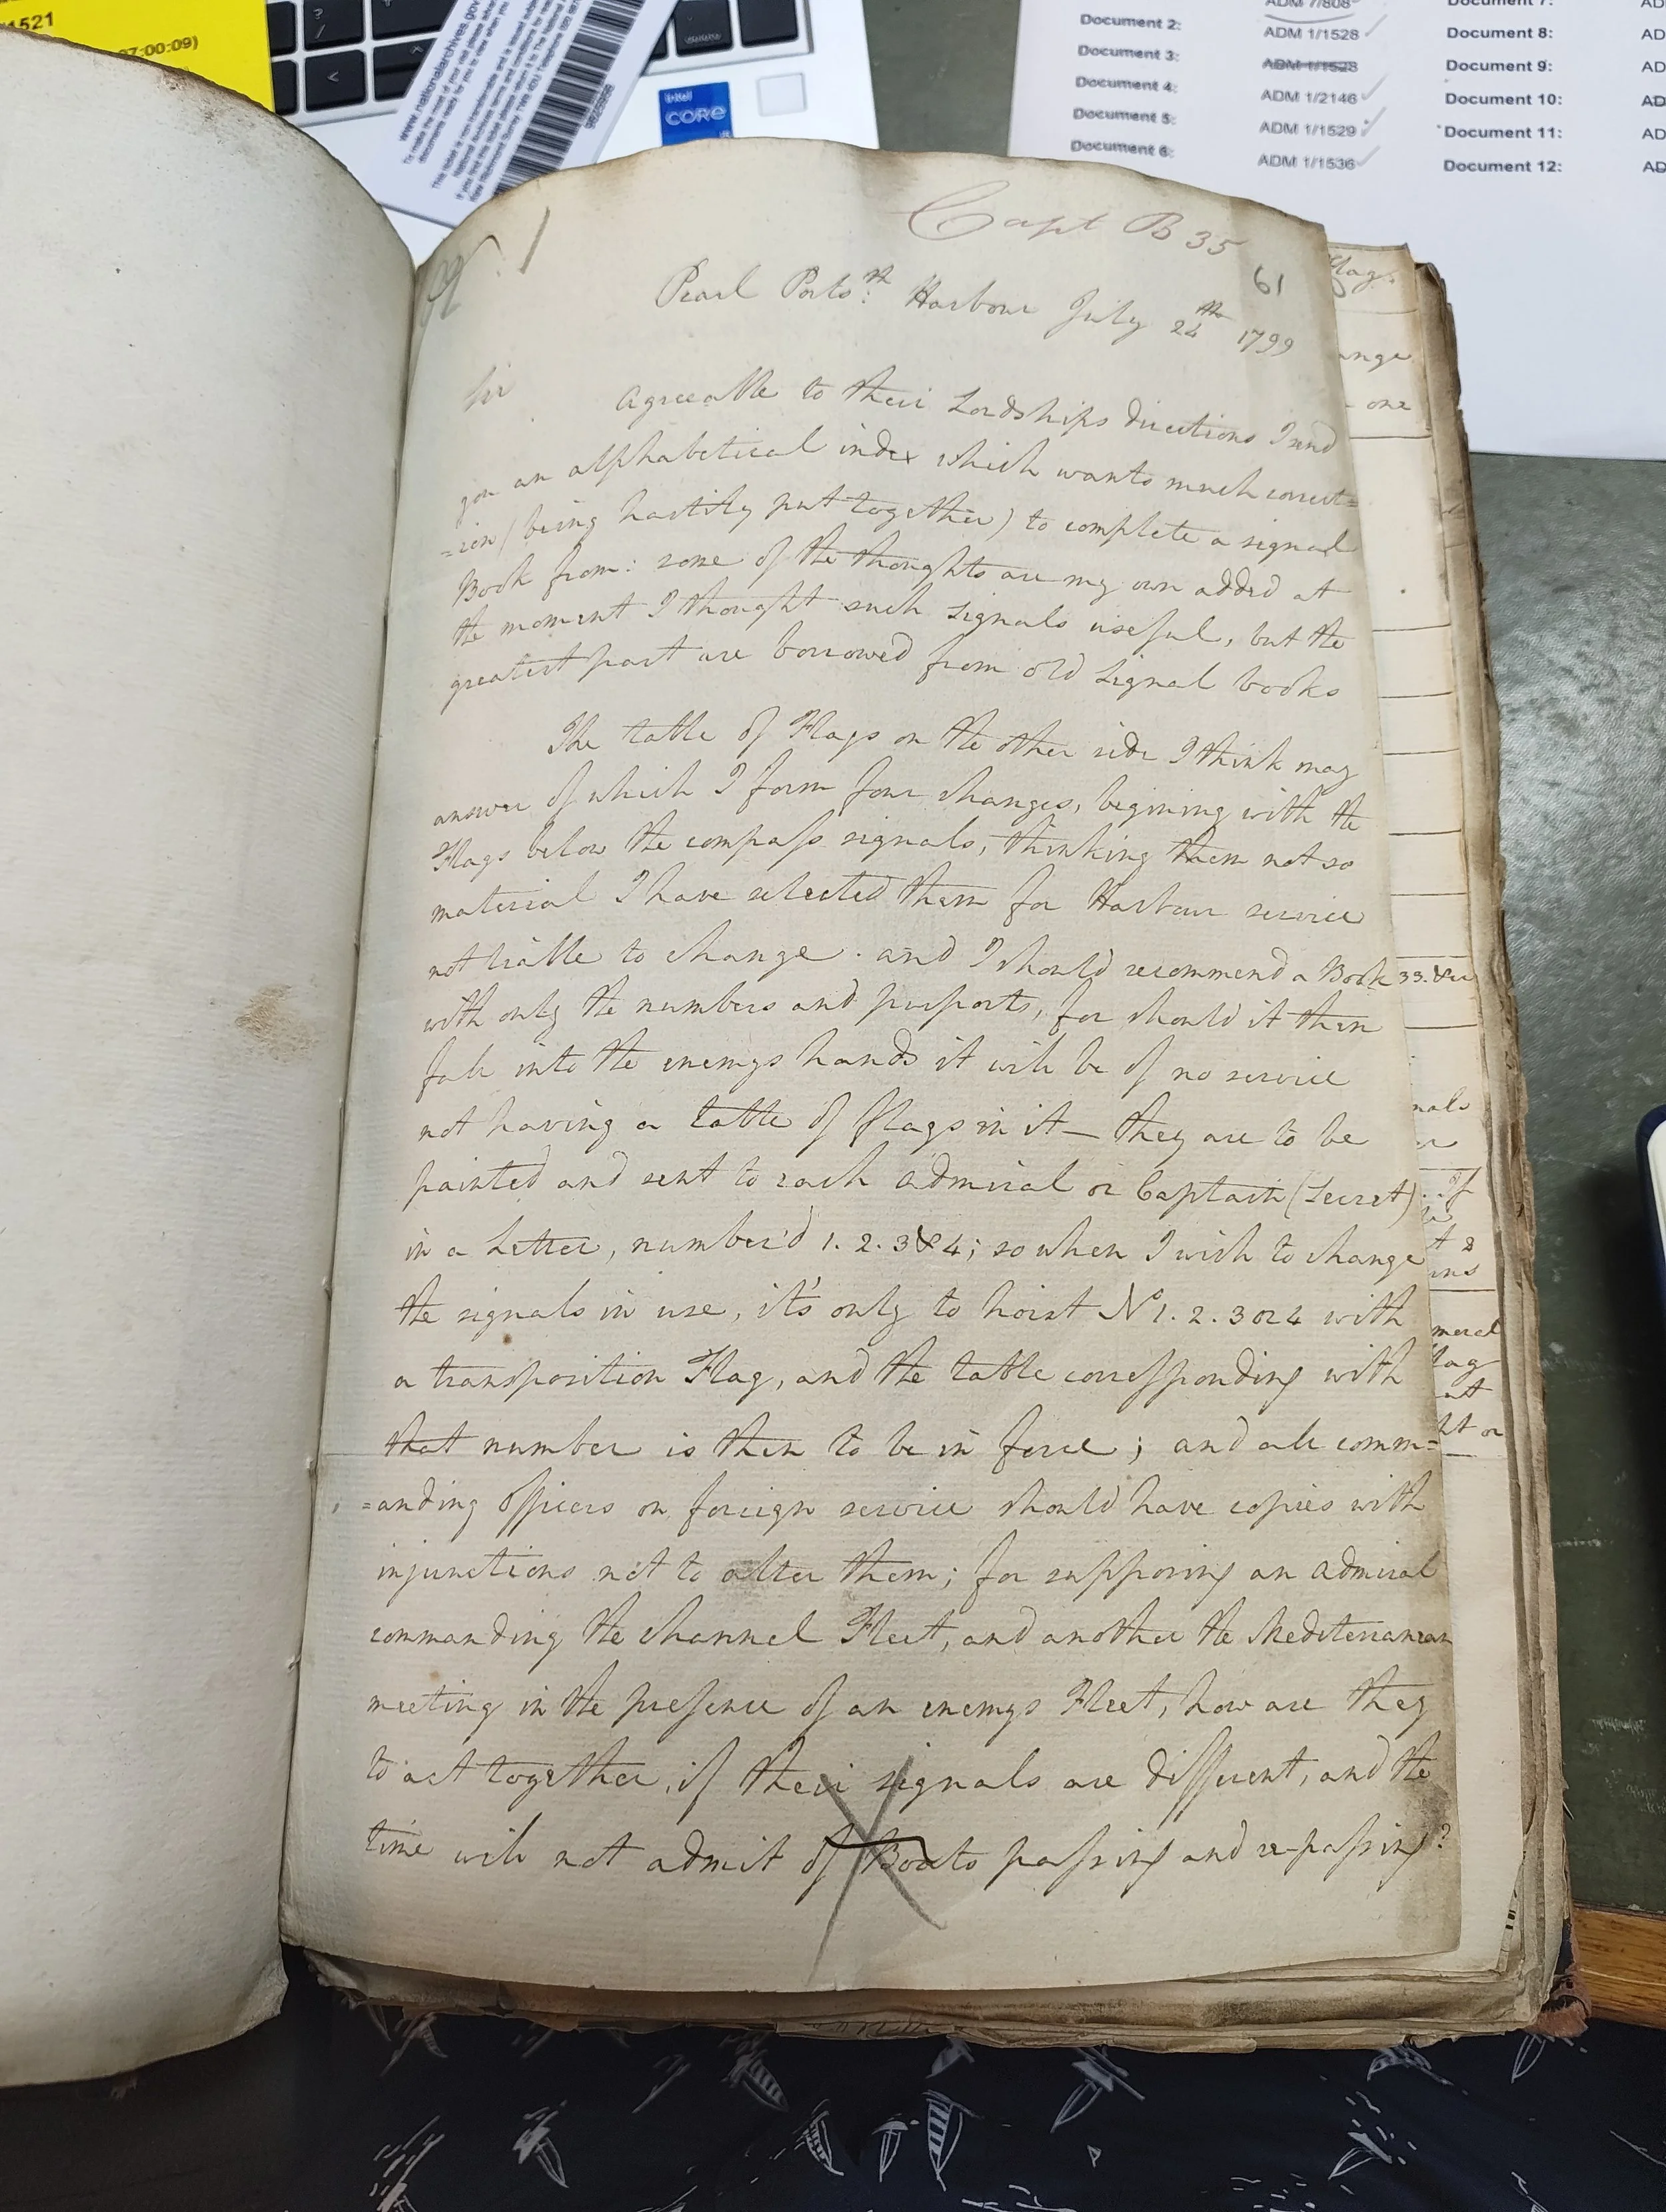 1521
07:00:09)
www.nationalarchives.gov
intel
CORE
ADM 7/808
Document 2: ADM 1/1528
Document 3: ADM 1/1528
Document 4: ADM 1/2146
Document 5: ADM 1/1529
Document 6: ADM 1/1536
Document 7: AD
Document 8: AD
Document 9: AD
Document 10: AD
Document 11: AD
Document 12: AD
Capt B 35
61
Pearl Ports:th Harbour July 24th 1799
Sir
Agreeable to their Lordships directions I send
you an alphabetical index which wants much correct=
=ion (being hastily put together) to complete a signal
Book from: some of the thoughts are my own added at
the moment I thought such signals useful, but the
greatest part are borrowed from old signal books
The table of Flags on the other side I think may
answer of which I form four changes, begining with the
Flags below the compass signals, thinking them not so
material I have selected them for Harbour service
not liable to change. and I should recommend a Book
with only the numbers and purports, for should it then
fall into the enemys hands it will be of no service
not having a table of flags in it — they are to be
painted and sent to each admiral or Captain (Secret)
in a Letter, number'd 1. 2. 3 & 4; so when I wish to change
the signals in use, it's only to hoist No 1. 2. 3 or 4 with
a transposition Flag, and the table corresponding with
that number is then to be in force; and all comm=
=anding officers on foreign service should have copies with
injunctions not to alter them; for supposing an admiral
commanding the channel Fleet, and another the Mediterranean
meeting in the presence of an enemys Fleet, how are they
to act together, if their signals are different, and the
time will not admit of Boats passing and re-passing?
lags
ange
one
33. &
nals
If
meral
lag
ht or